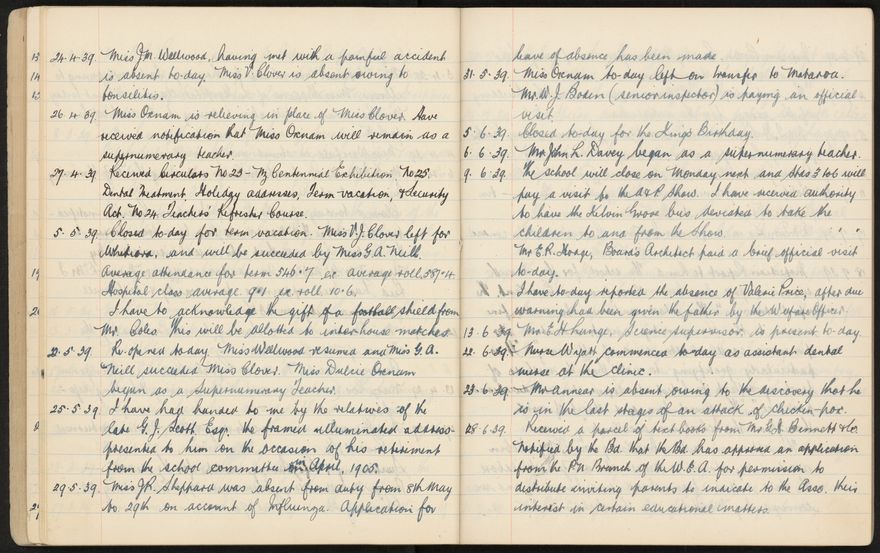 24.4.39. Miss J.M. Wellwood, having met with a painful accident
is absent to-day. Miss V. Clover is absent owing to
tonselitis.
26.4.39. Miss Oxnam is relieving in place of Miss Clover. Have
received notification that Miss Oxnam will remain as a
supernumerary teacher.
27.4.39 Received Circulars No 23 - Nz Centennial Exhibition. No 25.
Dental Treatment. Holiday addresses, Term vacation, & Security
Act. No 24 Teachers' Refresher Course.
5.5.39. Closed to day for term vacation. Miss V.J. Clover left for
and will be succeeded by Miss G.A. Neill.
Average attendance for term 546.7 ex average roll 587.4.
Hospital class average 9.1 ex roll 10.6.
I have to acknowledge the gift of a football shield from
Mr. Coles This will be allotted to inter house matches.
22.5.39. Re-opened to day. Miss Wellwood resumed and Miss G.A.
Neill succeeded Miss Clover. Miss Dulcie Oxnam
began as a Supernumerary Teacher.
25.5.39. I have had handed to me by the relatives of the
late G.J. Scott Esq. the framed illuminated address
presented to him on the occasion of his retirement
from the school committee April, 1905.
29.5.39. Miss J.R. Sheppard was absent from duty from 8th May
to 29th on account of Influenza. Application for
leave of absence has been made.
31.5.39. Miss Oxnam to-day left on transfer to Makaroa.
Mr. W.J. Boden (senior inspector) is paying an official
visit.
5.6.39. Closed to day for the King's Birthday.
6.6.39. Mr John L. Davey began as a supernumerary teacher.
9.6.39. The school will close on Monday next and Stds 3 to 6 will
pay a visit to the A & P Show. I have received authority
to have the Kelvin Grove bus deviated to take the
children to and from the Show. " "
Mr E.R. Hodge, Board's Architect paid a brief official visit
to-day.
I have to-day reported the absence of Valerie Price, after due
warning had been given the father by the Welfare Officer.
13.6.39 Mr. E.H. Lange, Science supervisor is present to day.
22.6.39. Nurse Wyatt commenced to-day as assistant dental
nurse at the clinic.
23.6.39. Mr. Annear is absent owing to the discovery that he
is in the last stages of an attack of chicken-pox.
28.6.39. Received a parcel of text books from Mr. G.H. Bennett & Co.
Notified by the Bd. that the Bd has approved an application
from the P.N. Branch of the W.E.A. for permission to
distribute inviting parents to indicate to the Asso. their
interest in certain educational matters.